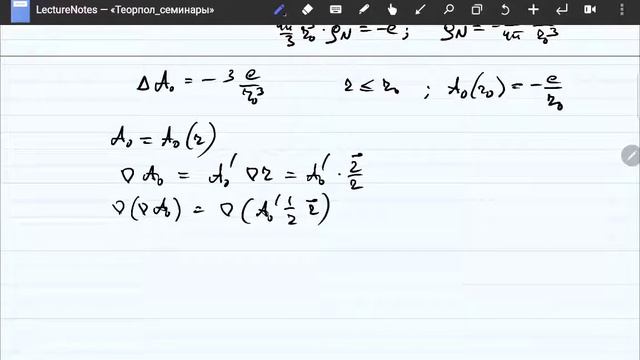 LectureNotes — «Теорпол_семинары»
r₀³ · ρ_N = −e; ρ_N = −
ΔA₀ = −3 e/r₀³ r ≤ r₀ ; A₀(r₀) = −e/r₀
A₀ = A₀(r)
∇A₀ = A₀′ ∇r = A₀′ · r⃗/r
∇(∇A₀) = ∇(A₀′ 1/r r⃗)